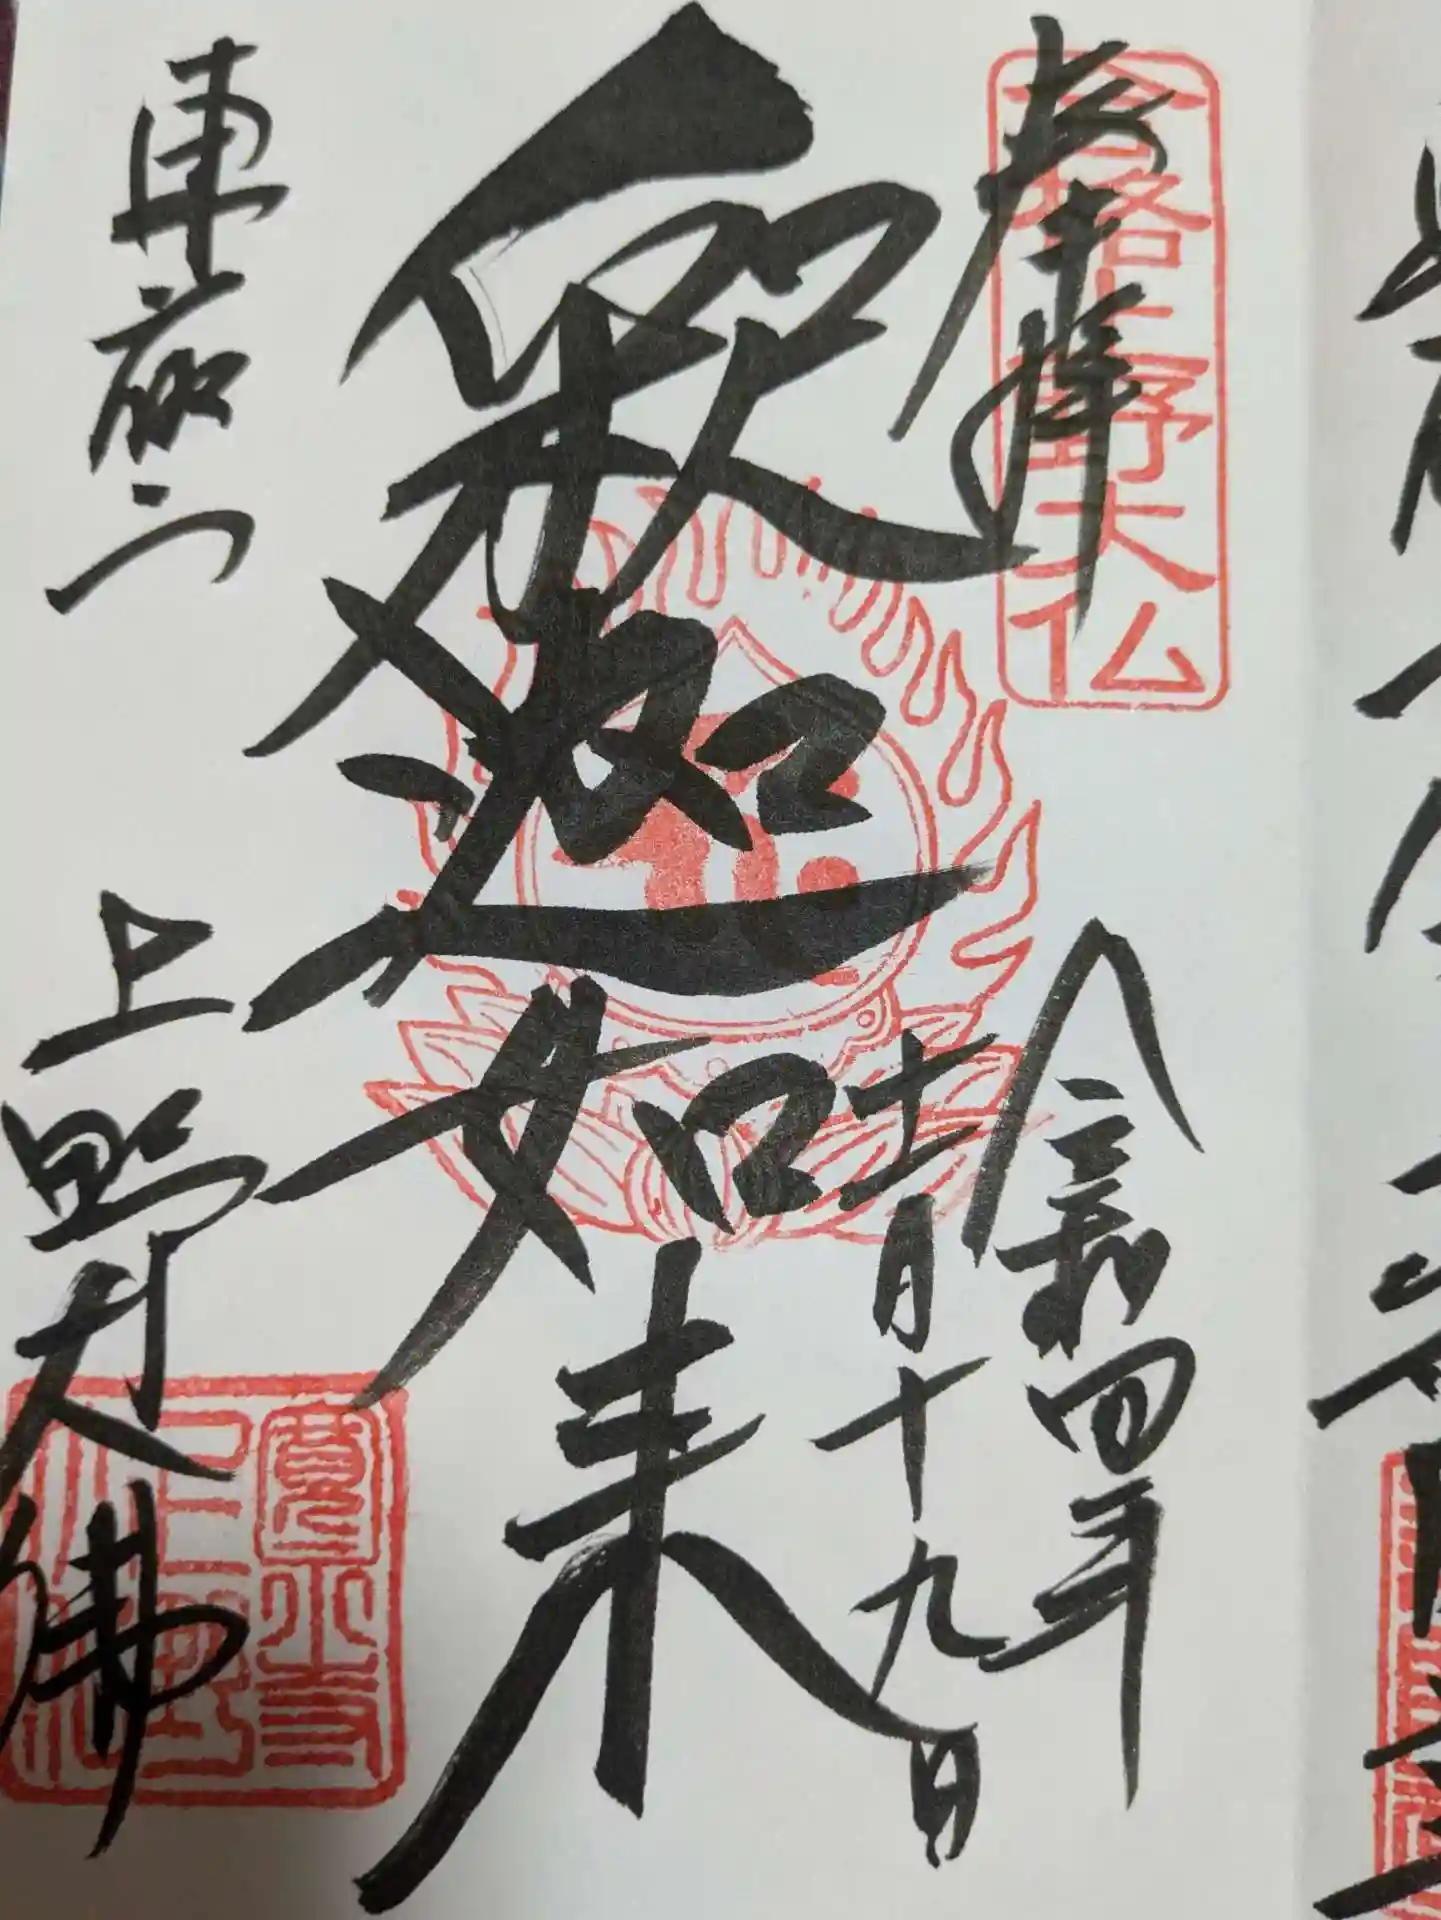 奉拝
合格上野大仏
令和四年
十一月十九日
釈迦如来
東叡山
上野大佛
寛永寺